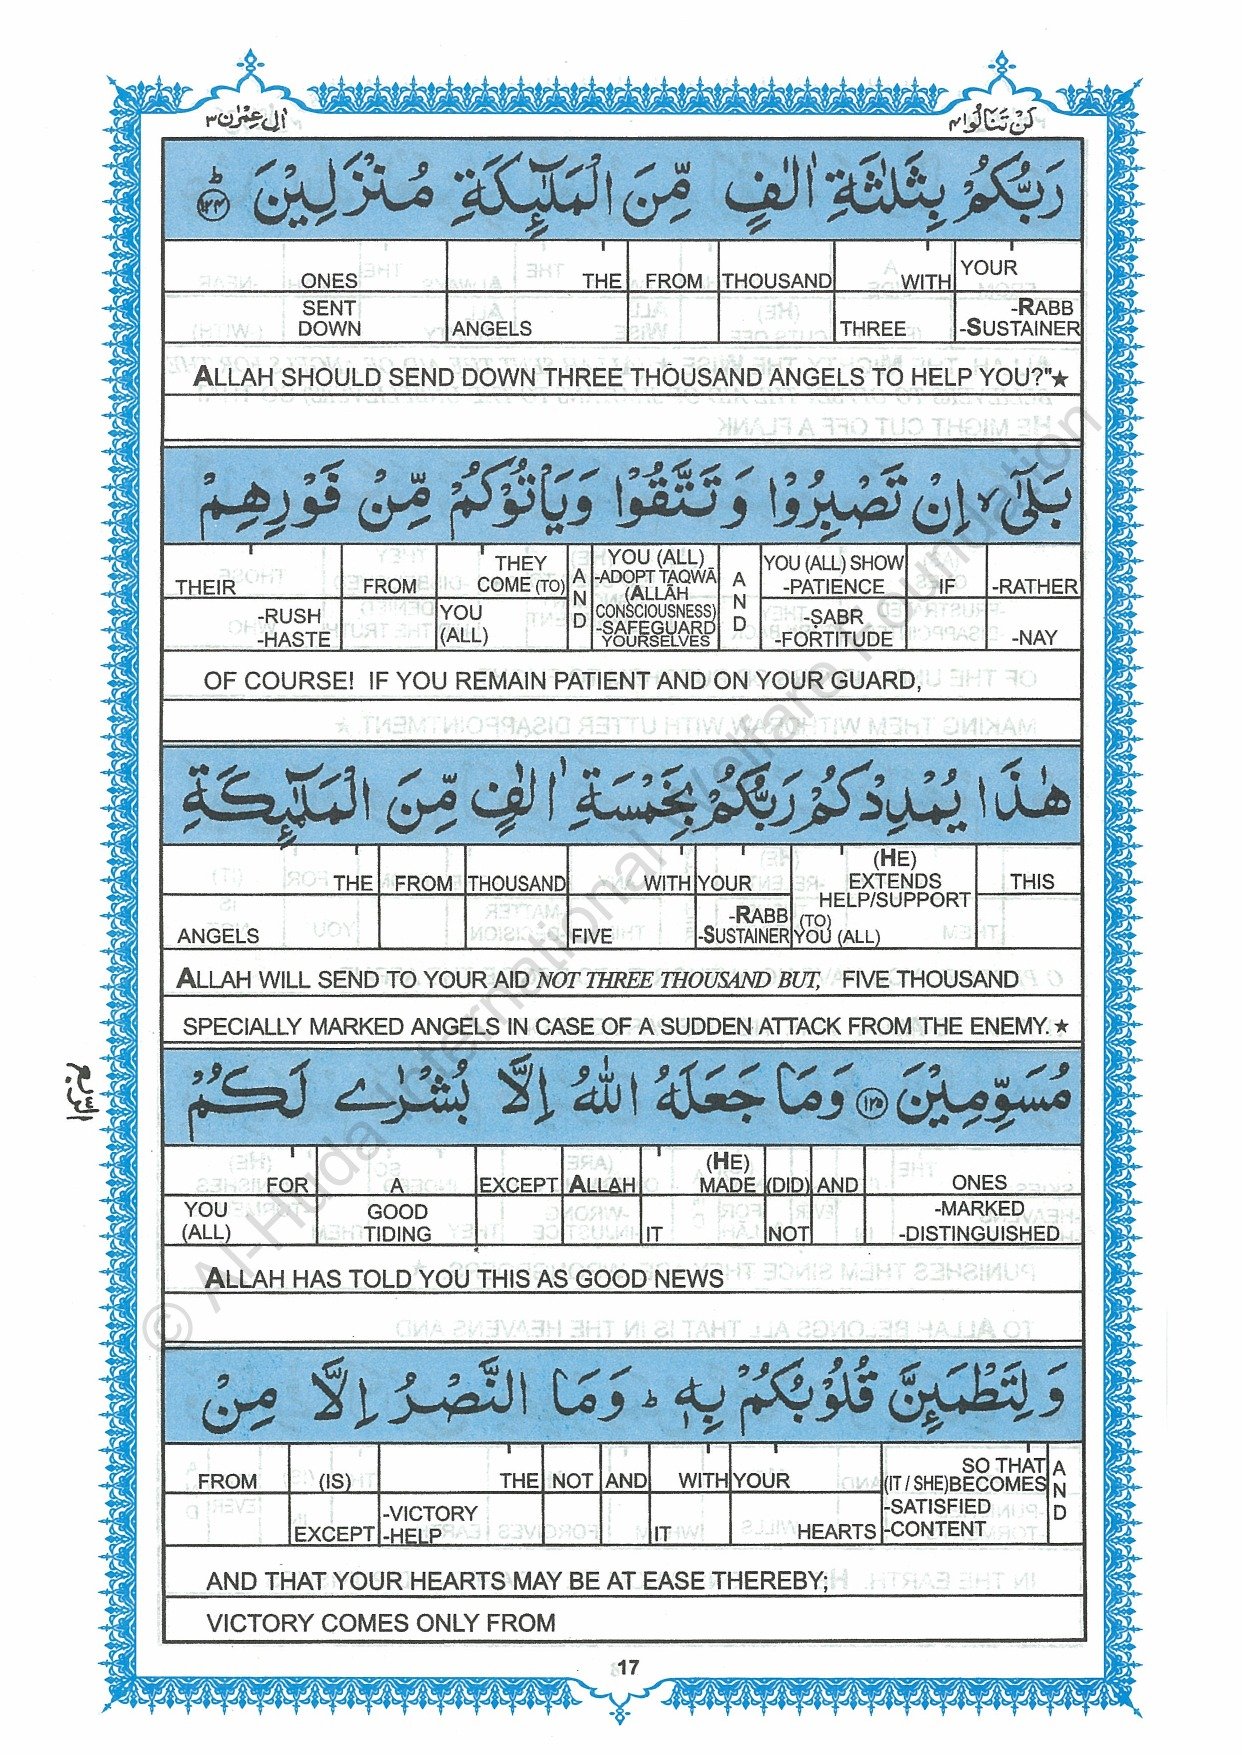 لَنْ تَنَالُوا ۴
اٰلِ عِمْرٰن ۳
رَبُّكُمْ بِثَلٰثَةِ اٰلٰفٍ مِّنَ الْمَلٰٓئِكَةِ مُنْزَلِيْنَ ؕ ۝۱۲۴
ONES THE FROM THOUSAND WITH YOUR
SENT DOWN ANGELS THREE -RABB -SUSTAINER
ALLAH SHOULD SEND DOWN THREE THOUSAND ANGELS TO HELP YOU?"★
بَلٰٓى ۙ اِنْ تَصْبِرُوْا وَتَتَّقُوْا وَيَاْتُوْكُمْ مِّنْ فَوْرِهِمْ
THEIR FROM THEY COME (TO) AND YOU (ALL) -ADOPT TAQWĀ (ALLĀH CONSCIOUSNESS) -SAFEGUARD YOURSELVES AND YOU (ALL) SHOW -PATIENCE IF -RATHER
-RUSH -HASTE YOU (ALL) -ṢABR -FORTITUDE -NAY
OF COURSE! IF YOU REMAIN PATIENT AND ON YOUR GUARD,
هٰذَا يُمْدِدْكُمْ رَبُّكُمْ بِخَمْسَةِ اٰلٰفٍ مِّنَ الْمَلٰٓئِكَةِ
THE FROM THOUSAND WITH YOUR (HE) EXTENDS HELP/SUPPORT THIS
ANGELS FIVE -RABB -SUSTAINER (TO) YOU (ALL)
ALLAH WILL SEND TO YOUR AID NOT THREE THOUSAND BUT, FIVE THOUSAND
SPECIALLY MARKED ANGELS IN CASE OF A SUDDEN ATTACK FROM THE ENEMY.★
مُسَوِّمِيْنَ ۝۱۲۵ وَمَا جَعَلَهُ اللّٰهُ اِلَّا بُشْرٰى لَكُمْ
الربع
FOR A EXCEPT ALLAH (HE) MADE (DID) AND ONES
YOU (ALL) GOOD TIDING IT NOT -MARKED -DISTINGUISHED
ALLAH HAS TOLD YOU THIS AS GOOD NEWS
وَلِتَطْمَئِنَّ قُلُوْبُكُمْ بِهٖ ؕ وَمَا النَّصْرُ اِلَّا مِنْ
FROM (IS) THE NOT AND WITH YOUR SO THAT (IT / SHE) BECOMES AND
EXCEPT -VICTORY -HELP IT HEARTS -SATISFIED -CONTENT
AND THAT YOUR HEARTS MAY BE AT EASE THEREBY;
VICTORY COMES ONLY FROM
17
© Al-Huda International Welfare Foundation